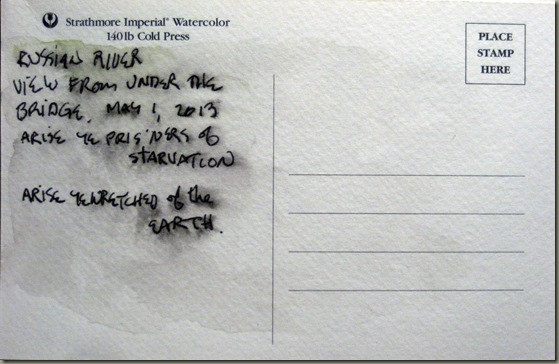 Strathmore Imperial® Watercolor
140 lb Cold Press
PLACE
STAMP
HERE
RUSSIAN RIVER
VIEW FROM UNDER THE
BRIDGE. MAY 1, 2013
ARISE YE PRIS'NERS of
STARVATION
ARISE YE WRETCHED of the
EARTH.